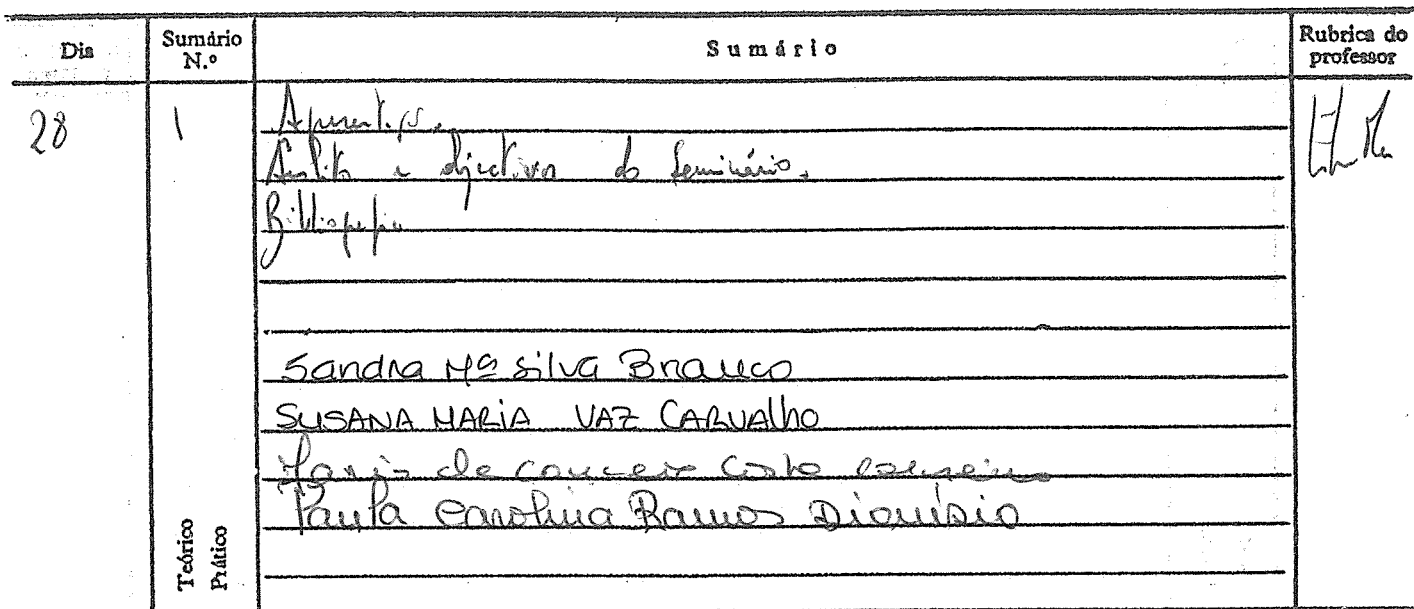 Dia Sumário N.º Sumário Rubrica do professor
28 1 Apresentação.
Âmbito e objectivos do Seminário.
Bibliografia
Sandra Mª Silva Branco
SUSANA MARIA VAZ CARVALHO
Maria de Costa
Paula Carolina Ramos Dionísio
Teórico
Prático